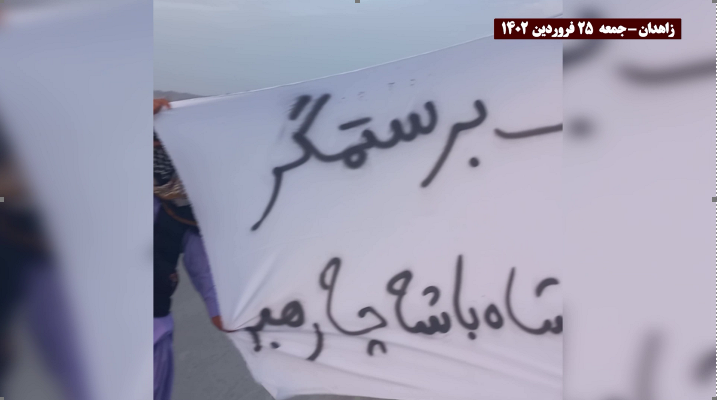 زاهدان – جمعه ۲۵ فروردین ۱۴۰۲
بر ستمگر
شاه باشه چا رهبر